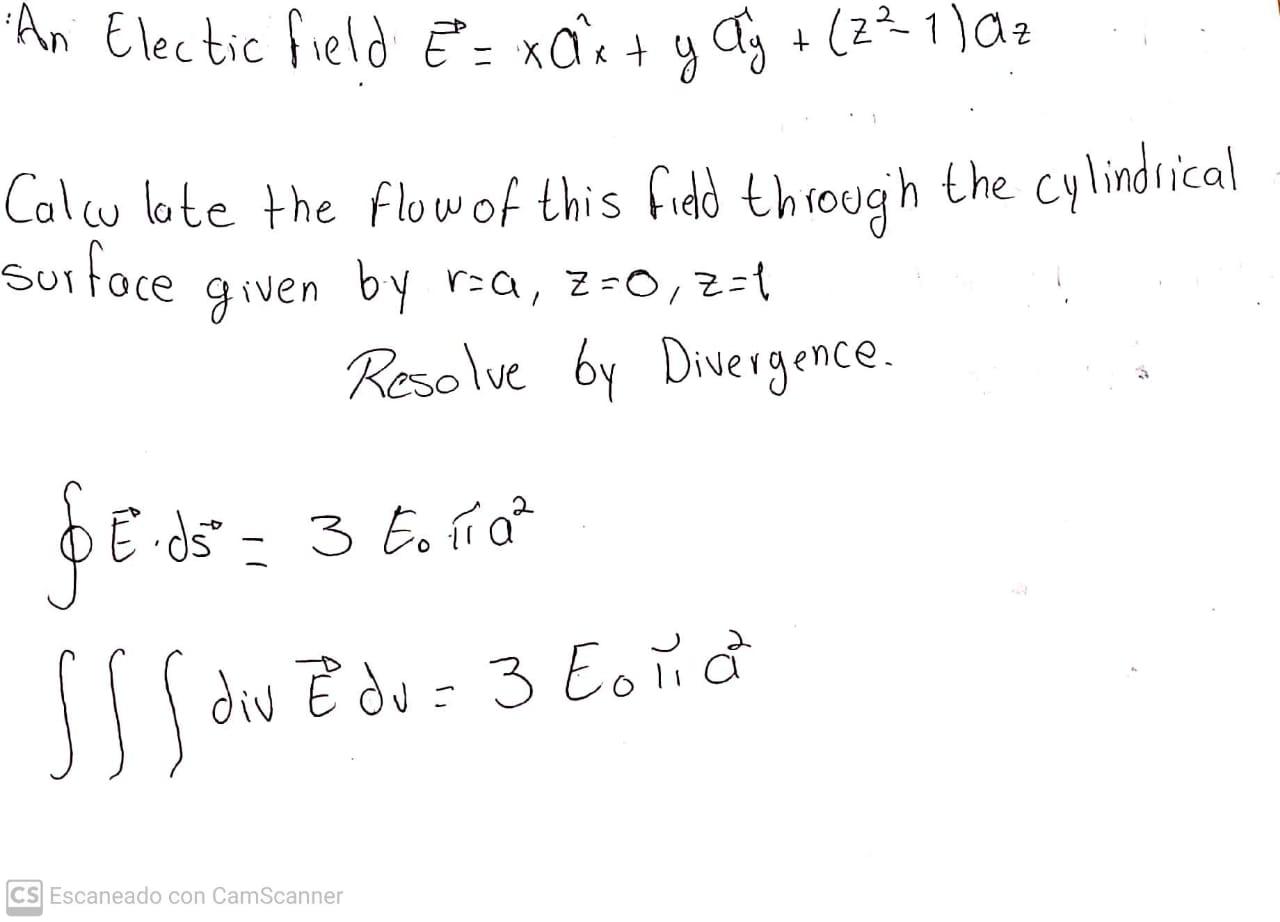 An Electic field E⃗ = xâx + y ây + (z²-1)az
Calculate the flow of this field through the cylindrical
surface given by r=a, z=0, z=1
Resolve by Divergence.
∮ E⃗ · ds⃗ = 3 E₀ π a²
∫∫∫ div E⃗ dv = 3 E₀ π a²
CS Escaneado con CamScanner